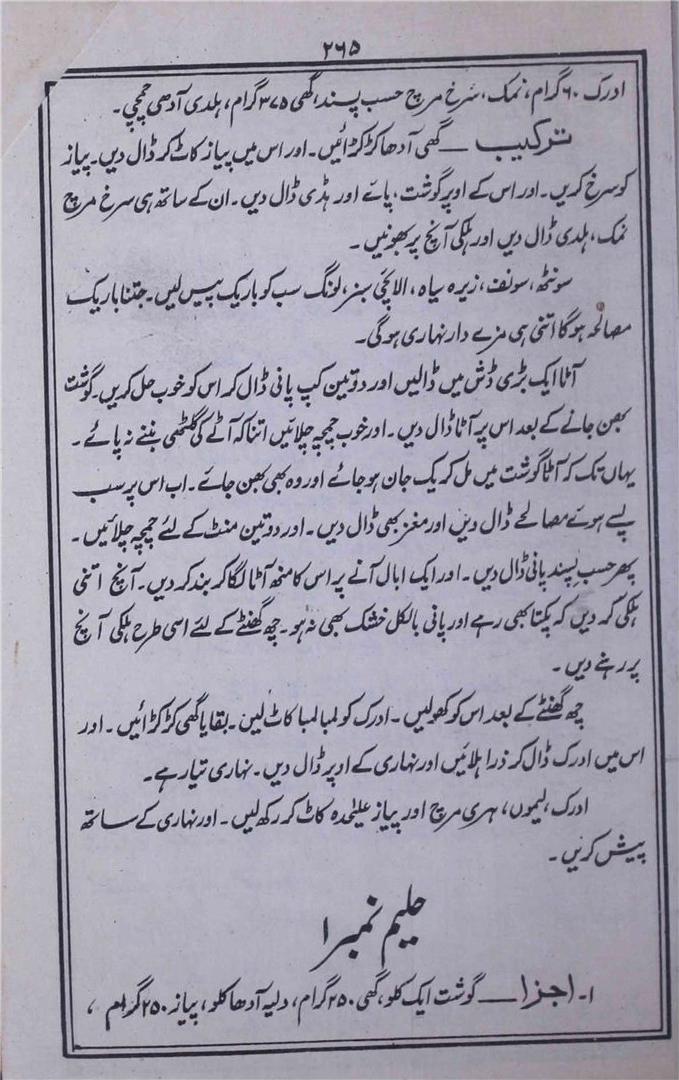 ۲۶۵
ادرک ۶۰ گرام، نمک، سرخ مرچ حسب پسند، گھی ۳۷۵ گرام، ہلدی آدھی چمچی۔
ترکیب — گھی آدھا کڑکڑائیں۔ اور اس میں پیاز کاٹ کر ڈال دیں۔ پیاز
کو سرخ کریں۔ اور اس کے اوپر گوشت، پائے اور ہڈی ڈال دیں۔ ان کے ساتھ ہی سرخ مرچ
نمک، ہلدی ڈال دیں اور ہلکی آنچ پر بھونیں۔
سونٹھ، سونف، زیرہ سیاہ، الائچی سبز، لونگ سب کو باریک پیس لیں۔ جتنا باریک
مصالحہ ہوگا اتنی ہی مزے دار نہاری ہو گی۔
آٹا ایک بڑی ڈش میں ڈالیں اور دو تین کپ پانی ڈال کر اس کو خوب حل کریں۔ گوشت
بھن جانے کے بعد اس پر آٹا ڈال دیں۔ اور خوب چمچہ چلائیں اتنا کہ آٹے کی گٹھلی بننے نہ پائے۔
یہاں تک کہ آٹا گوشت میں مل کر یک جان ہو جائے اور وہ بھی بھن جائے۔ اب اس پر سب
پسے ہوئے مصالحے ڈال دیں اور مغز بھی ڈال دیں۔ اور دو تین منٹ کے لئے چمچہ چلائیں۔
پھر حسب پسند پانی ڈال دیں۔ اور ایک ابال آنے پر اس کا منھ آٹا لگا کر بند کر دیں۔ آنچ اتنی
ہلکی کر دیں کہ پکتا بھی رہے اور پانی بالکل خشک بھی نہ ہو۔ چھ گھنٹے کے لئے اسی طرح ہلکی آنچ
پر رہنے دیں۔
چھ گھنٹے کے بعد اس کو کھولیں۔ ادرک کو لمبا لمبا کاٹ لیں۔ بقایا گھی کڑکڑائیں۔ اور
اس میں ادرک ڈال کر ذرا ہلائیں اور نہاری کے اوپر ڈال دیں۔ نہاری تیار ہے۔
ادرک، لیموں، ہری مرچ اور پیاز علیٰحدہ کاٹ کر رکھ لیں۔ اور نہاری کے ساتھ
پیش کریں۔
حلیم نمبر ۱
۱۔ اجزا — گوشت ایک کلو، گھی ۲۵۰ گرام، دلیہ آدھا کلو، پیاز ۲۵۰ گرام،